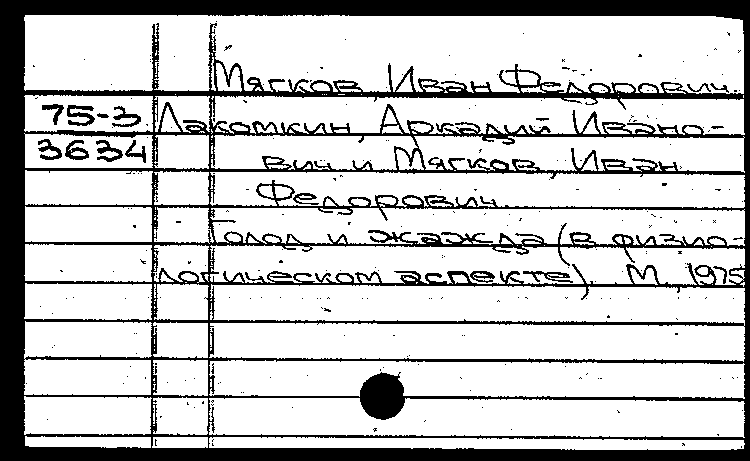 Мягков, Иван Федорович.
75-3
3634
Лакомкин, Аркадий Ивано-
вич и Мягков, Иван
Федорович.
Голод и жажда (в физио-
логическом аспекте). М., 1975